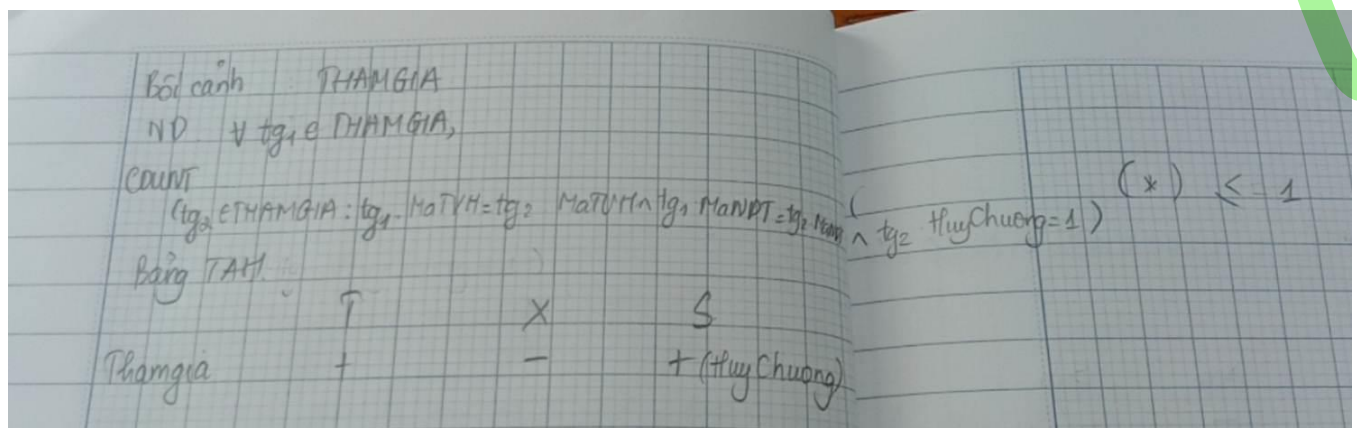 Bối cảnh THAMGIA
ND ∀ tg1 ∈ THAMGIA,
COUNT
(tg2 ∈ THAMGIA : tg1. MaTVH = tg2 MaTVH ∧ tg1 MaNDT = tg2 ∧ tg2 HuyChuong = 1) (*) <= 1
Bảng TAH.
T X S
Thamgia + - + (HuyChuong)